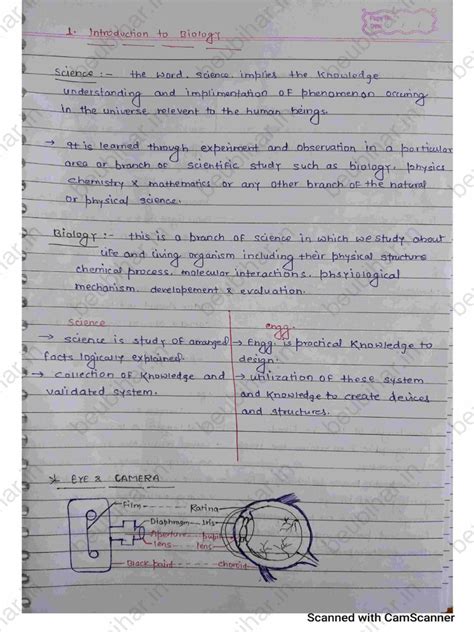 Page No.
Date
1. Introduction to Biology
Science :- the word, science, implies the knowledge
understanding and implimentation of phenomenon occuring
in the universe relevent to the human beings.
→ It is learned through experiment and observation in a particular
area or branch of scientific study such as biology, physics
chemistry & mathematics or any other branch of the natural
or physical science.
Biology :- this is a branch of science in which we study about
life and living organism including their physical structure
chemical process, molecular interactions, physiological
mechanism, developement & evaluation.
Science
engg.
→ science is study of arranged
facts logically explained.
→ collection of knowledge and
validated system.
→ Engg. is practical knowledge to
design.
→ utilization of these system
and knowledge to create devices
and structures.
* EYE & CAMERA
Film
Ratina
Diaphragm
Iris
Aperture
pupil
lens
lens
Black paint
choroid
beubihar.in
Scanned with CamScanner